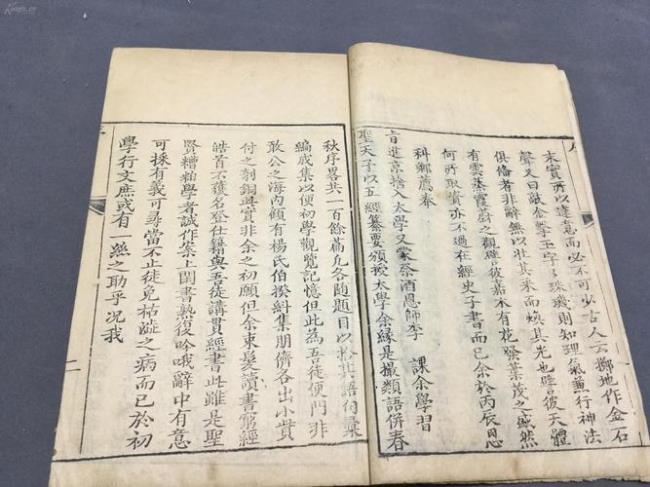 序
末實所以達意而必不可少古人云擲地作金石
聲又曰敲金擊玉字字珠璣則知理氣兼行神法
俱備者非辭無以壯其采而煥其光也譬彼天體
有雲蒸霞蔚之觀瑞彼嘉木有花發葉茂之盛然
何所取資亦不過在經史子書而已余於丙辰恩
科鄉薦春
官進京捨入太學又蒙祭酒恩師李 課余學習
聖天子以五經纂要頒授太學余緣是撮類語併春
秋序畧共一百餘篇凡各随題目以於其語句彙
編成集以便初學觀覽記憶但此為吾徒便門非
敢公之海內傾有楊氏伯揆糾集朋儕各出小貲
付之剞劂此實非余之初願但余束髮讀書窮經
皓首不獲名登仕籍與吾徒講貫經書此雖是聖
賢糟粕學者誠作案上閒書熟復吟哦辭中有意
可採有義可尋當不止徒免枯澁之病而已於初
學行文庶或有一絲之助乎況我
二